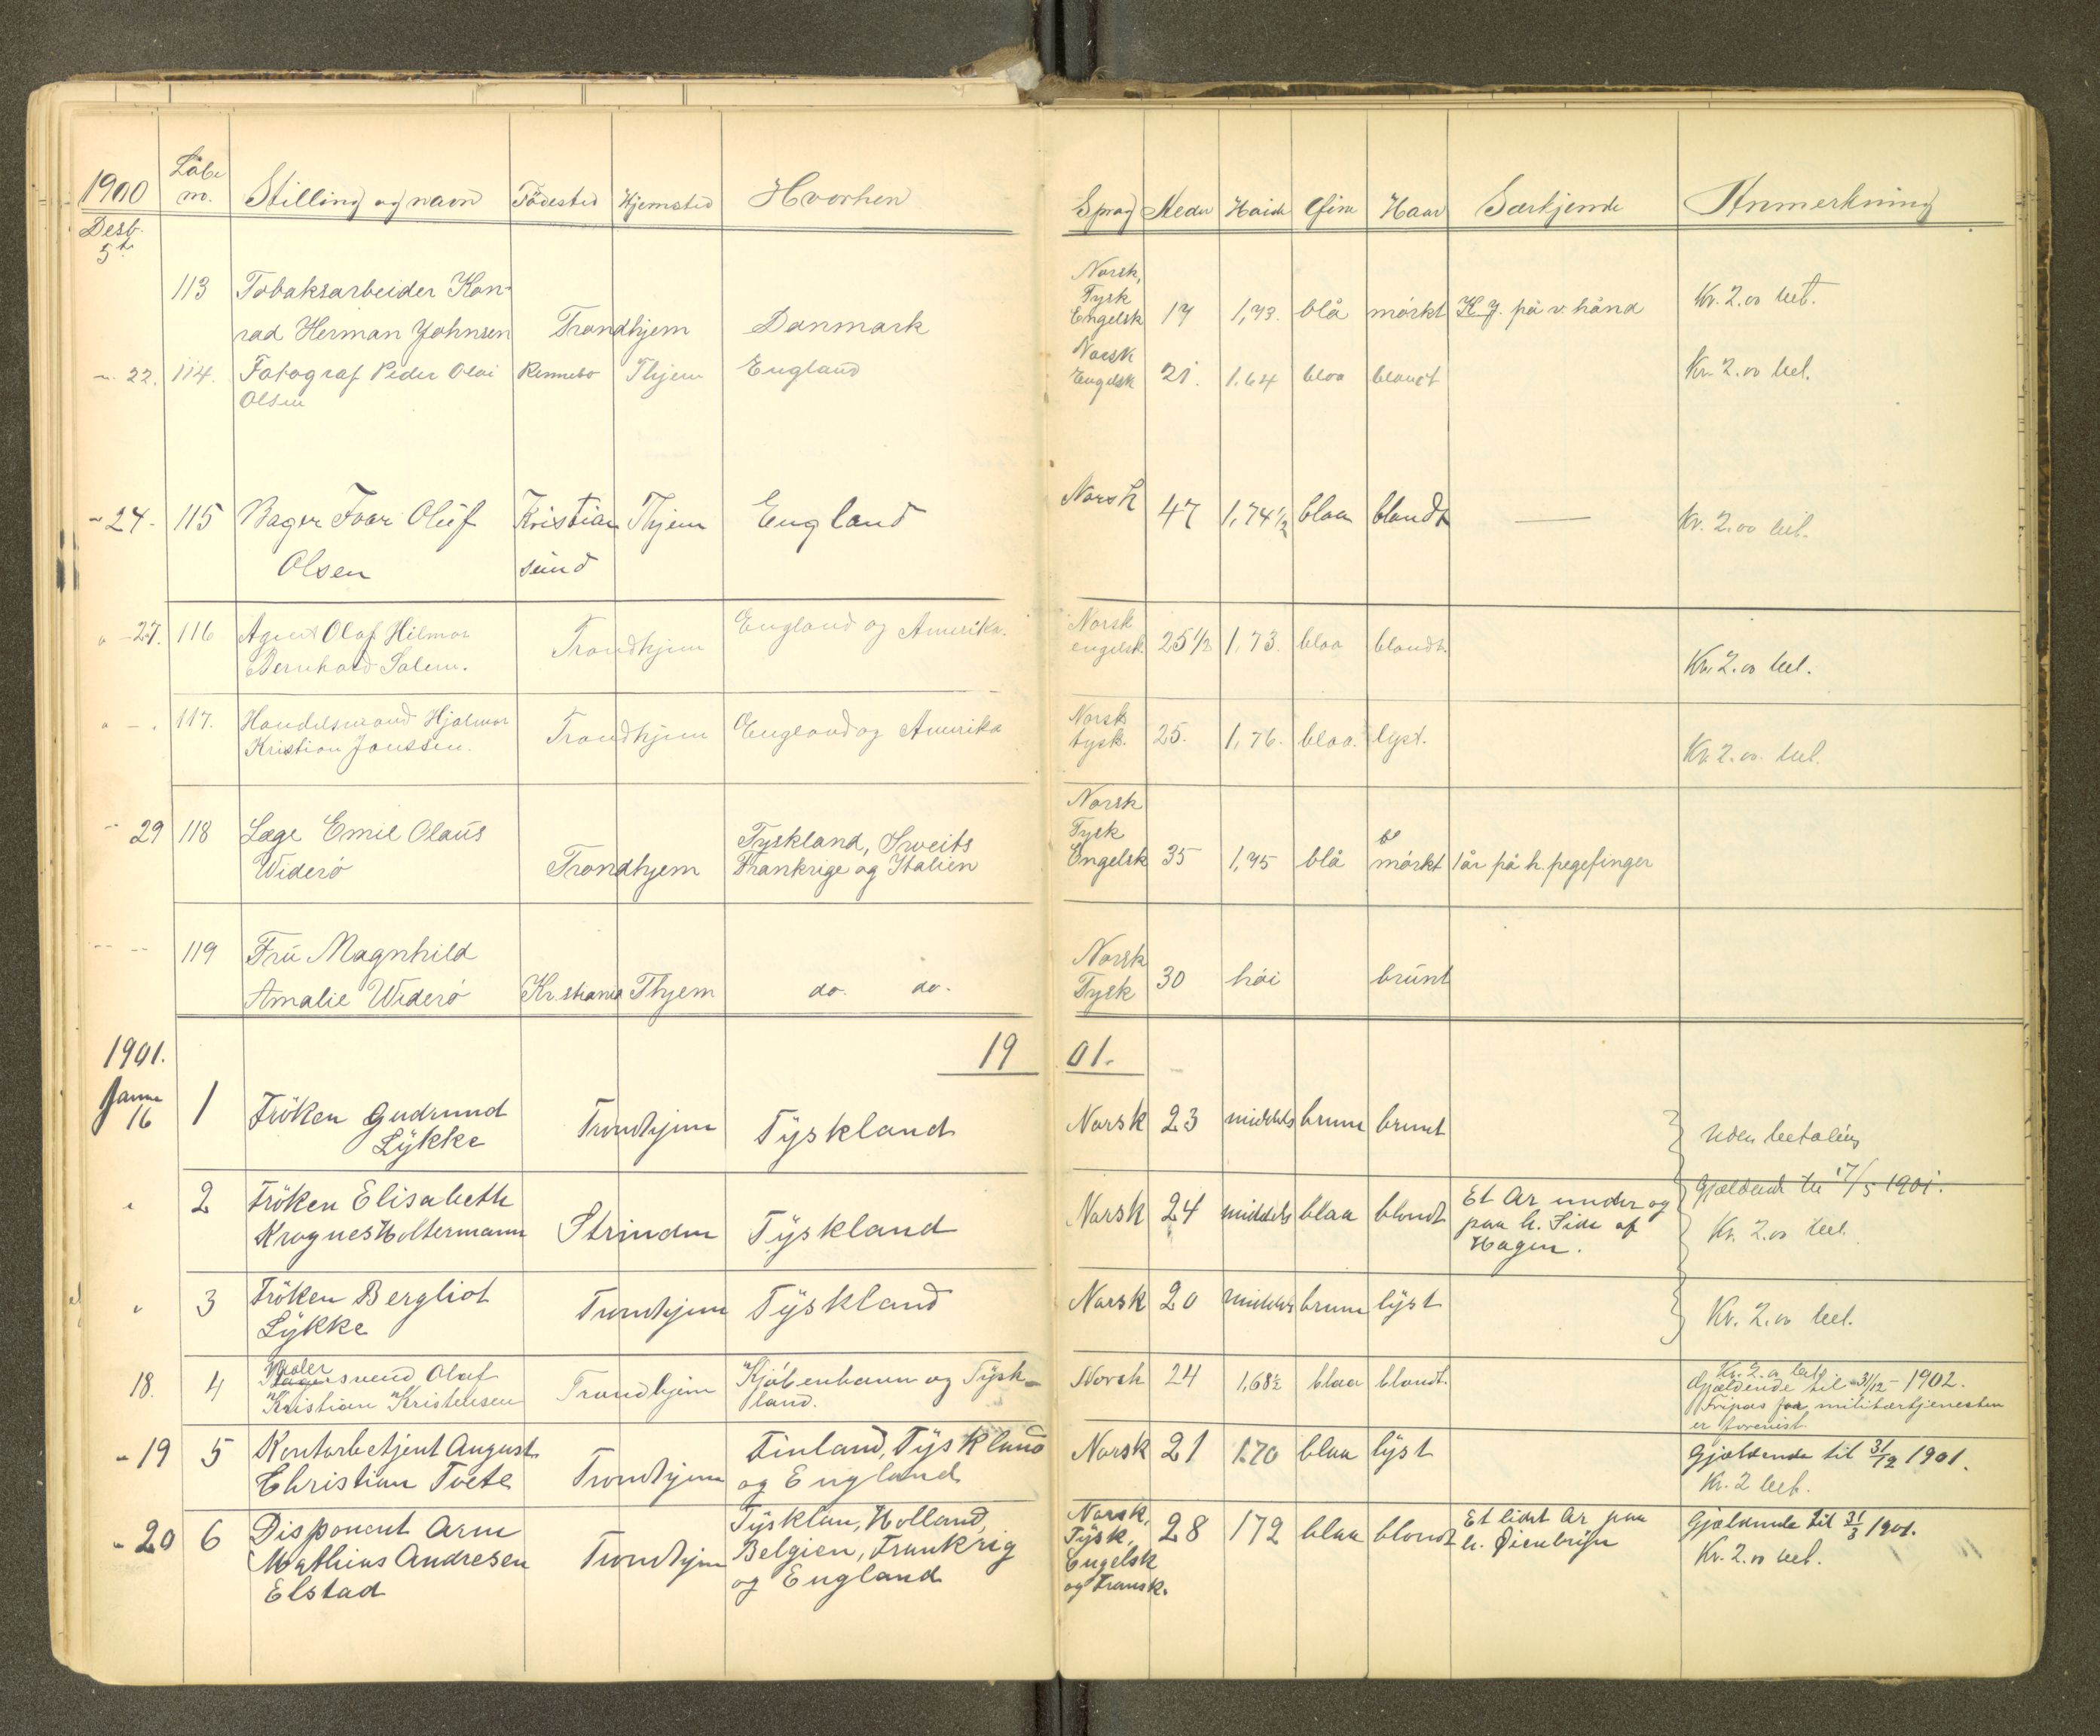 1900 Løbe no. Stilling og navn Födested Hjemsted Hvorhen Sprog Alder Høide Øine Haar Særkjende Anmerkning
Desb. 5te
113 Tobaksarbeider Kon-
rad Herman Johnsen Trondhjem Danmark Norsk, Tysk Engelsk 17 1,73. blå mörkt K. J. på v. hånd Kr. 2.00 bet.
22. 114. Fotograf Peder Olai
Olsen Rennebo Thjem England Norsk Engelsk 21. 1.64 blaa blondt Kr. 2.00 bet.
24. 115 Bager Ivar Oluf
Olsen Kristian
sund Thjem England Norsk 47 1,74 1/2 blaa blondt — Kr. 2.00 bet.
" - 27. 116 Agent Olaf Hilmar
Bernhard Salem. Trondhjem England og Amerika. Norsk engelsk 25 1/2 1,73. blaa blondt. Kr. 2.00 bet.
" - . 117. Handelsmand Hjalmar
Kristian Janssen. Trondhjem England og Amerika Norsk tysk. 25. 1,76. blaa. lyst. Kr. 2.00. bet.
29 118 Læge Emil Olaus
Widerö Trondhjem Tyskland, Sveits
Frankrige og Italien Norsk Tysk Engelsk 35 1,75 blå mörkt 1 år på h. pegefinger
-- -- 119 Fru Magnhild
Amalie Widerö Kr.stiania Thjem do. do. Norsk Tysk 30 höi brunt
1901. 19 01.
Janua 16 1 Fröken Gudrund
Lykke Trondhjem Tyskland Norsk 23 middels brune brunt Uden betaling
" 2 Fröken Elisabeth
Krognes Holtermann Strinden Tyskland Norsk 24 middels blaa blondt Et Ar under og
paa h. Side af
Hagen. Gjældende til 17/5 1901.
Kr. 2.00 bet.
" 3 Fröken Bergliot
Lykke Trondhjem Tyskland Norsk 20 middels brune lyst Kr. 2.00 bet.
18. 4 svend Olaf
Kristian Kristensen Trondhjem Kjöbenhavn og Tysk-
land. Norsk 24 1,68 1/2 blaa blondt. Kr. 2.00 bet.
Gjældende til 31/12 - 1902.
Fripas for militærtjenesten
er forevist.
- 19 5 Kontorbetjent August
Christian Tvete Trondhjem Finland, Tyskland
og England Norsk 21 1.70 blaa lyst Gjældende til 31/12 1901.
Kr. 2 bet.
- 20 6 Disponent Arne
Mathias Andresen
Elstad Trondhjem Tysklan, Holland,
Belgien, Frankrig
og England Norsk, Tysk, Engelsk og Fransk. 28 172 blaa blondt Et lidet Ar paa
h. Øienbryn Gjældende til 31/3 1901.
Kr. 2.00 bet.